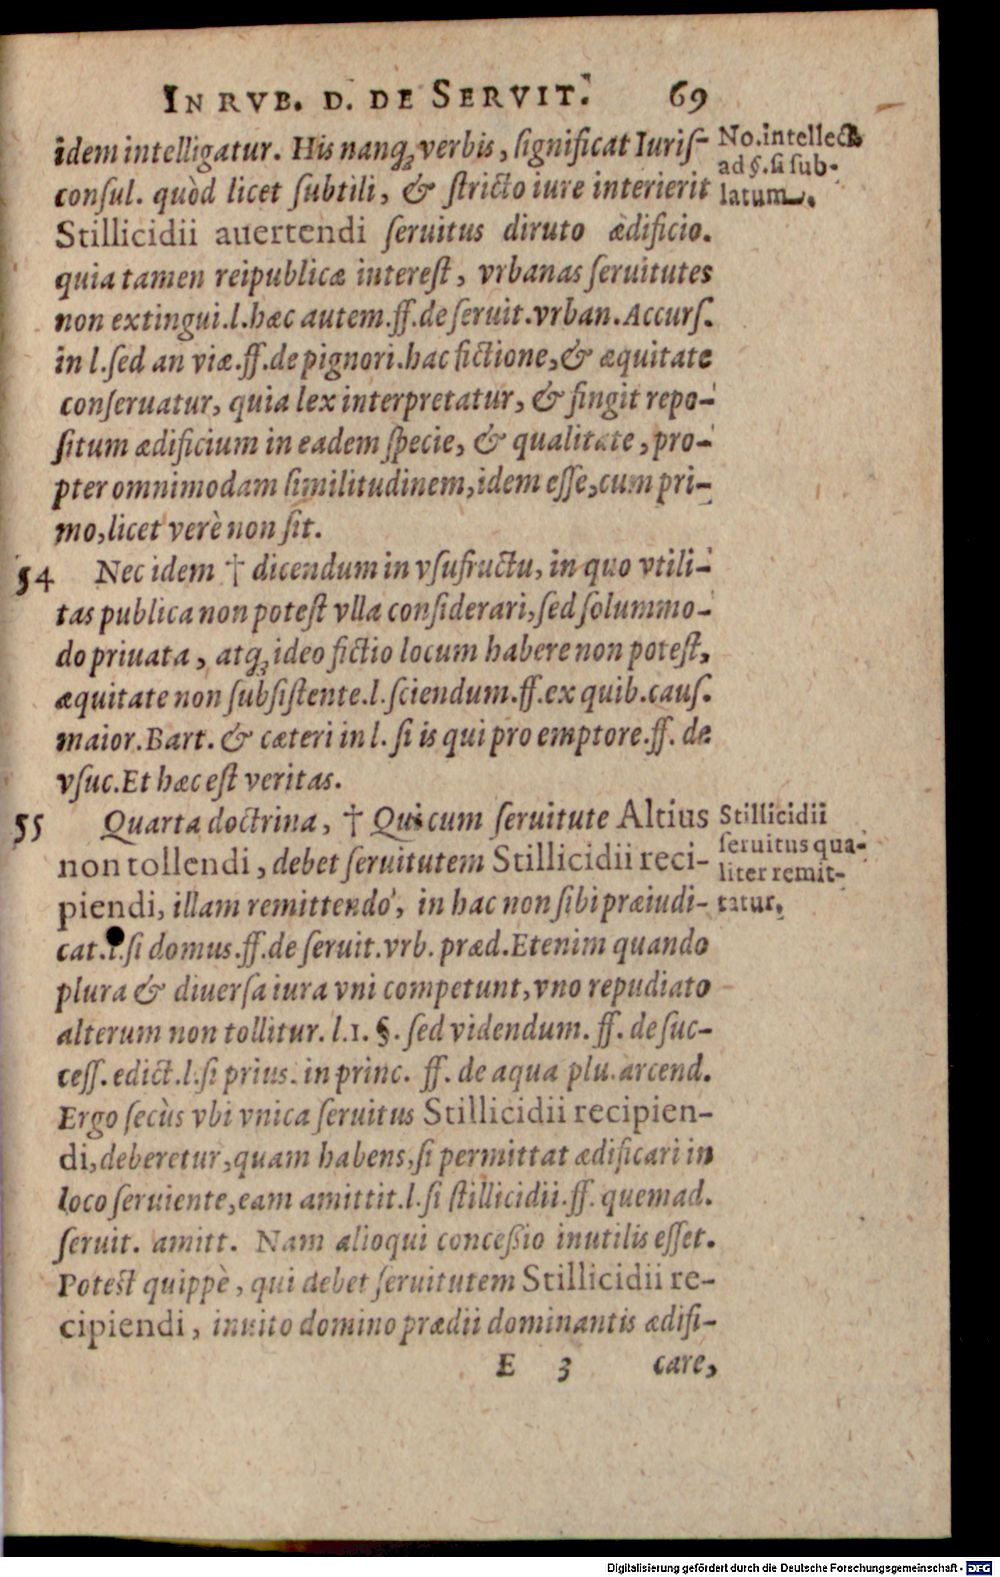 IN RVB. D. DE SERVIT. 69
idem intelligatur. His nanq; verbis, significat Iuris-
No. intellect.
ad §. si sub-
latum.
consul. quòd licet subtili, & stricto iure interierit
Stillicidii auertendi seruitus diruto ædificio.
quia tamen reipublicæ interest, vrbanas seruitutes
non extingui.l.hæc autem.ff.de seruit.vrban.Accurs.
in l.sed an viæ.ff.de pignori.hac fictione,& æquitate
conseruatur, quia lex interpretatur, & fingit repo-
situm ædificium in eadem specie, & qualitate, pro-
pter omnimodam similitudinem, idem esse, cum pri-
mo, licet verè non sit.
54 Nec idem † dicendum in vsufructu, in quo vtili-
tas publica non potest vlla considerari, sed solummo-
do priuata, atq; ideo fictio locum habere non potest,
æquitate non subsistente.l.sciendum.ff.ex quib.caus.
maior.Bart. & cæteri in l. si is qui pro emptore.ff. de
vsuc. Et hæc est veritas.
55 Quarta doctrina, † Qui cum seruitute Altius
Stillicidii
seruitus qua-
liter remit-
titur.
non tollendi, debet seruitutem Stillicidii reci-
piendi, illam remittendo, in hac non sibi præiudi-
cat.l.si domus.ff.de seruit.vrb. præd.Etenim quando
plura & diuersa iura vni competunt, vno repudiato
alterum non tollitur. l.1. §. sed videndum. ff. de suc-
cess. edict.l.si prius. in princ. ff. de aqua plu. arcend.
Ergo secùs vbi vnica seruitus Stillicidii recipien-
di, deberetur, quam habens, si permittat ædificari in
loco seruiente, eam amittit.l.si stillicidii.ff. quemad.
seruit. amitt. Nam alioqui concessio inutilis esset.
Potest quippè, qui debet seruitutem Stillicidii re-
cipiendi, inuito domino prædii dominantis ædifi-
E 3 care,
Digitalisierung gefördert durch die Deutsche Forschungsgemeinschaft - DFG